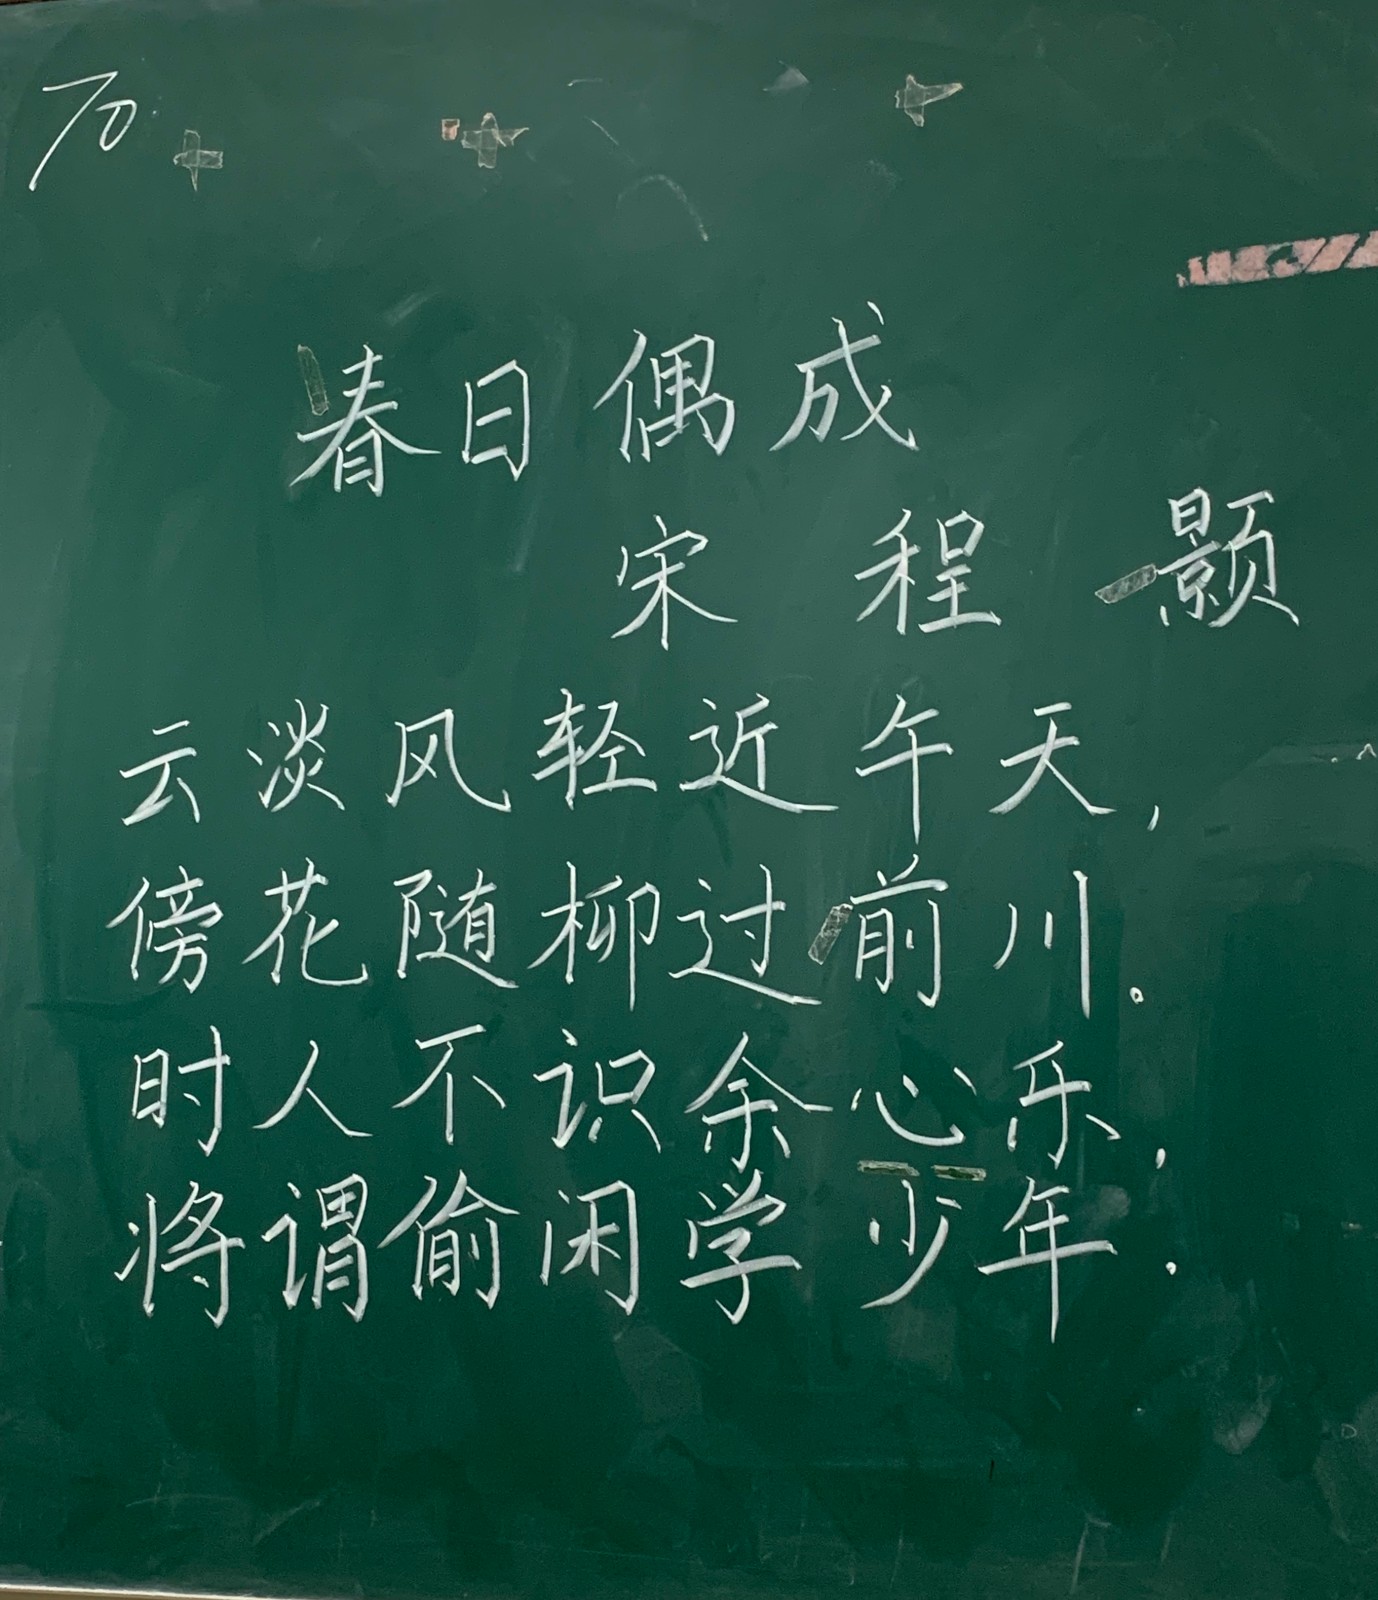 70
春日偶成
宋 程 颢
云淡风轻近午天,
傍花随柳过前川。
时人不识余心乐,
将谓偷闲学少年.